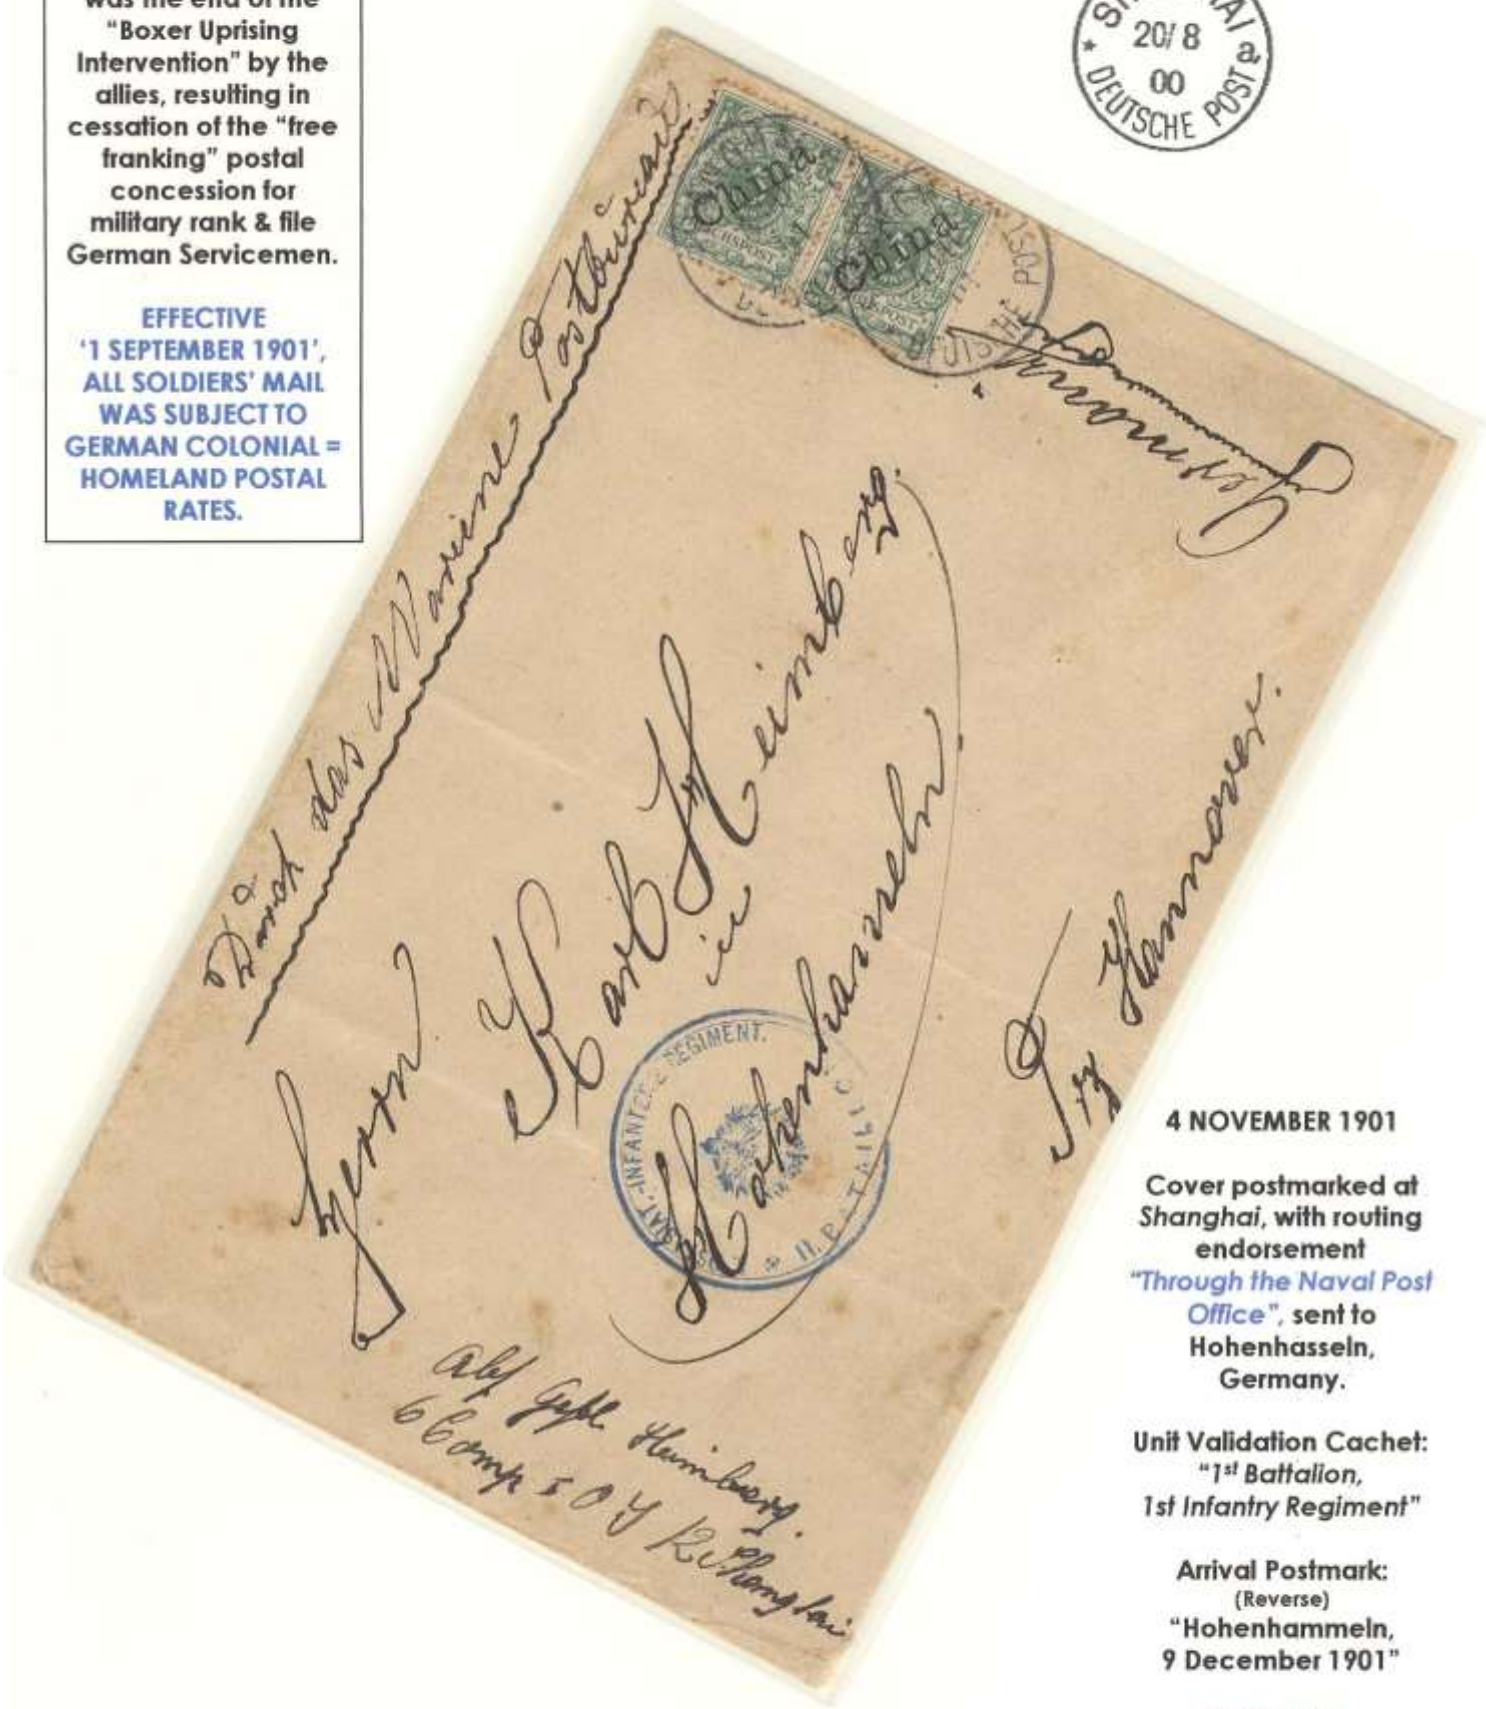 was the end of the
"Boxer Uprising
Intervention" by the
allies, resulting in
cessation of the "free
franking" postal
concession for
military rank & file
German Servicemen.
EFFECTIVE
'1 SEPTEMBER 1901',
ALL SOLDIERS' MAIL
WAS SUBJECT TO
GERMAN COLONIAL =
HOMELAND POSTAL
RATES.
20/8
00
* DEUTSCHE POST a
China
China
Durch das Marine Postbüreau
Germany
Herrn
Karl Heimberg.
in
Hohenhameln
Prz Hannover.
INFANTERIE REGIMENT.
II. BATAILLO
Abs Gefr. Heimberg.
6 Comp 5 O J R Shanghai
4 NOVEMBER 1901
Cover postmarked at
Shanghai, with routing
endorsement
"Through the Naval Post
Office", sent to
Hohenhasseln,
Germany.
Unit Validation Cachet:
"1st Battalion,
1st Infantry Regiment"
Arrival Postmark:
(Reverse)
"Hohenhammeln,
9 December 1901"